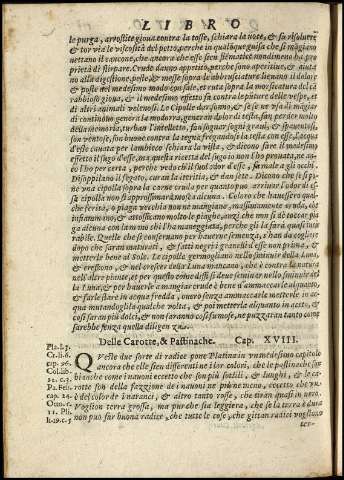 LIBRO
le purga, arrostite gioua contra la tosse, schiara la uoce, & fa risoluere
& tor via le viscosità del petto, perche in qualũque guisa che si mãgiano
nettano il cancone, che ancora che esse sien flematice nondimeno ha pro
prietà di stirpare. Crude danno appetito, perche sono aperitiue, & aiuta
no alla digestione, peste, & messe sopra le abbrusciature lieuano il dolore
& poste del medesimo modo con sale, et ruta sopra la morsicatura del cã
rabbioso gioua, & il medesimo effetto fa contra le punture delle vespe, et
di altri animali velenosi. Le Cipolle dormono, & se se ne vsa di mãgiar
di continouo genera la modorra, generan dolor di testa, fan perder molto
della memoria, turban l'intelletto, fan sognar sogni graui, & spauentosi,
son ventose, son buone contra la tegna fregandosi la testa con esse. L'acqua
d'esse cauata per lambicco schiara la vista, & dicono fare il medesimo
effetto il sugo d'esse, ma questa ricetta del sugo io non l'ho prouata, ne an
co l'ho per certa, perche vedo che il suo calor d'esse, fa male a gli occhi.
Disoppilano il fegato, curan la itteritia, & dan sete. Dicono che se si pi-
ne vna cipolla sopra la carne cruda per quanto puo arriuar l'odor di es-
sa cipolla non si approssimarà mosca alcuna. Coloro che hauessero qual-
che ferita, o piaga vecchia non ne mangino, massimamente crude, che
infiammano, & attossicano molto le piaghe, anzi che non si dè toccar pia
ga alcuna con la mano che l'ha maneggiata, perche gli la farà quasi in-
rabiare. Quelle che si conseruan per hauerne semenza, s'han da cogliere
dopo che saran maturati, & fatti negri i granelli d'esse non prima, &
metterle bene al Sole. Le cipolle germogliano nell'sminuire della Luna,
& crescono, & nel crescer d'essa Luna mancano, che è contra la natura
nell'altre piante, et per questo come dissi si deue seminar nello sminuir de
la Luna, & per hauerle a mangiar crude è bene di ammaccarle alquãto,
& farle stare in acqua fredda, ouero senza ammaccarle metterle in ac-
qua mutandogliela qualche volta, & poi metterle alquanto in aceto, &
cosi saran più dolci, & non faran sognare, ne puzzaran tanto come
sarebbe senza quella diligenza.
Delle Carotte, & Pastinache. Cap. XVIII.
Pla.l.3.
Cr.li.6.
cap. 96.
Col.lib.
11. c.3.
Pa. Feb.
cap. 24.
Otto. c.
11. Pli.
li.19.c.5
Quelle due sorte di radice pone Platina in vn medesimo capitolo
ancora che elle sieno differenti ne i lor colori, che le pastinache son
bianche come i nauoni eccetto che son più sottili, & lunghi, & le ca-
rotte son della fazzione de i nauoni ne più ne meno, eccetto che vn
è del color de i naranci, & altro tanto rosse, che tiran quasi in nero.
Vogliono terra grossa, ma pur che sia leggiera, che se la terra è dura
non puo far buona radice, che tutte le cose, che gittan radici vogliono
ter-